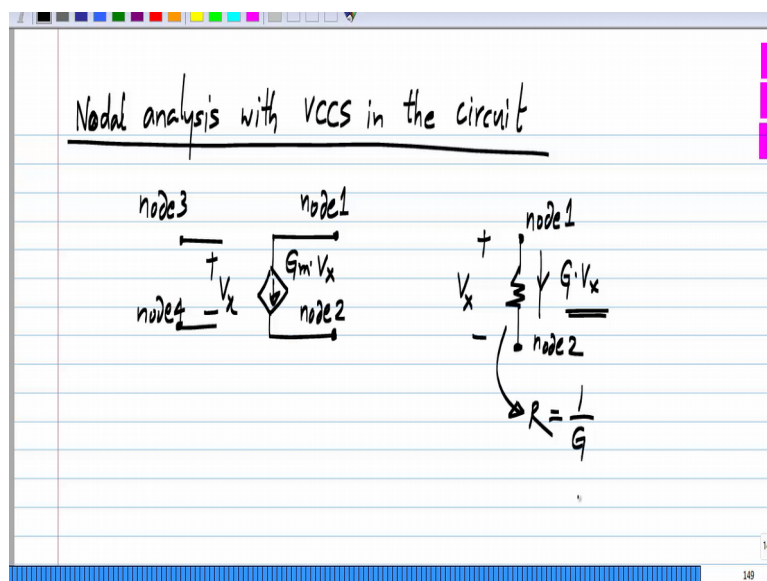 Nodal analysis with VCCS in the circuit
node3 node1
+ Gm·Vx
Vx
node4 - node2
node1
+ G·Vx
Vx
- node2
R = 1/G
149